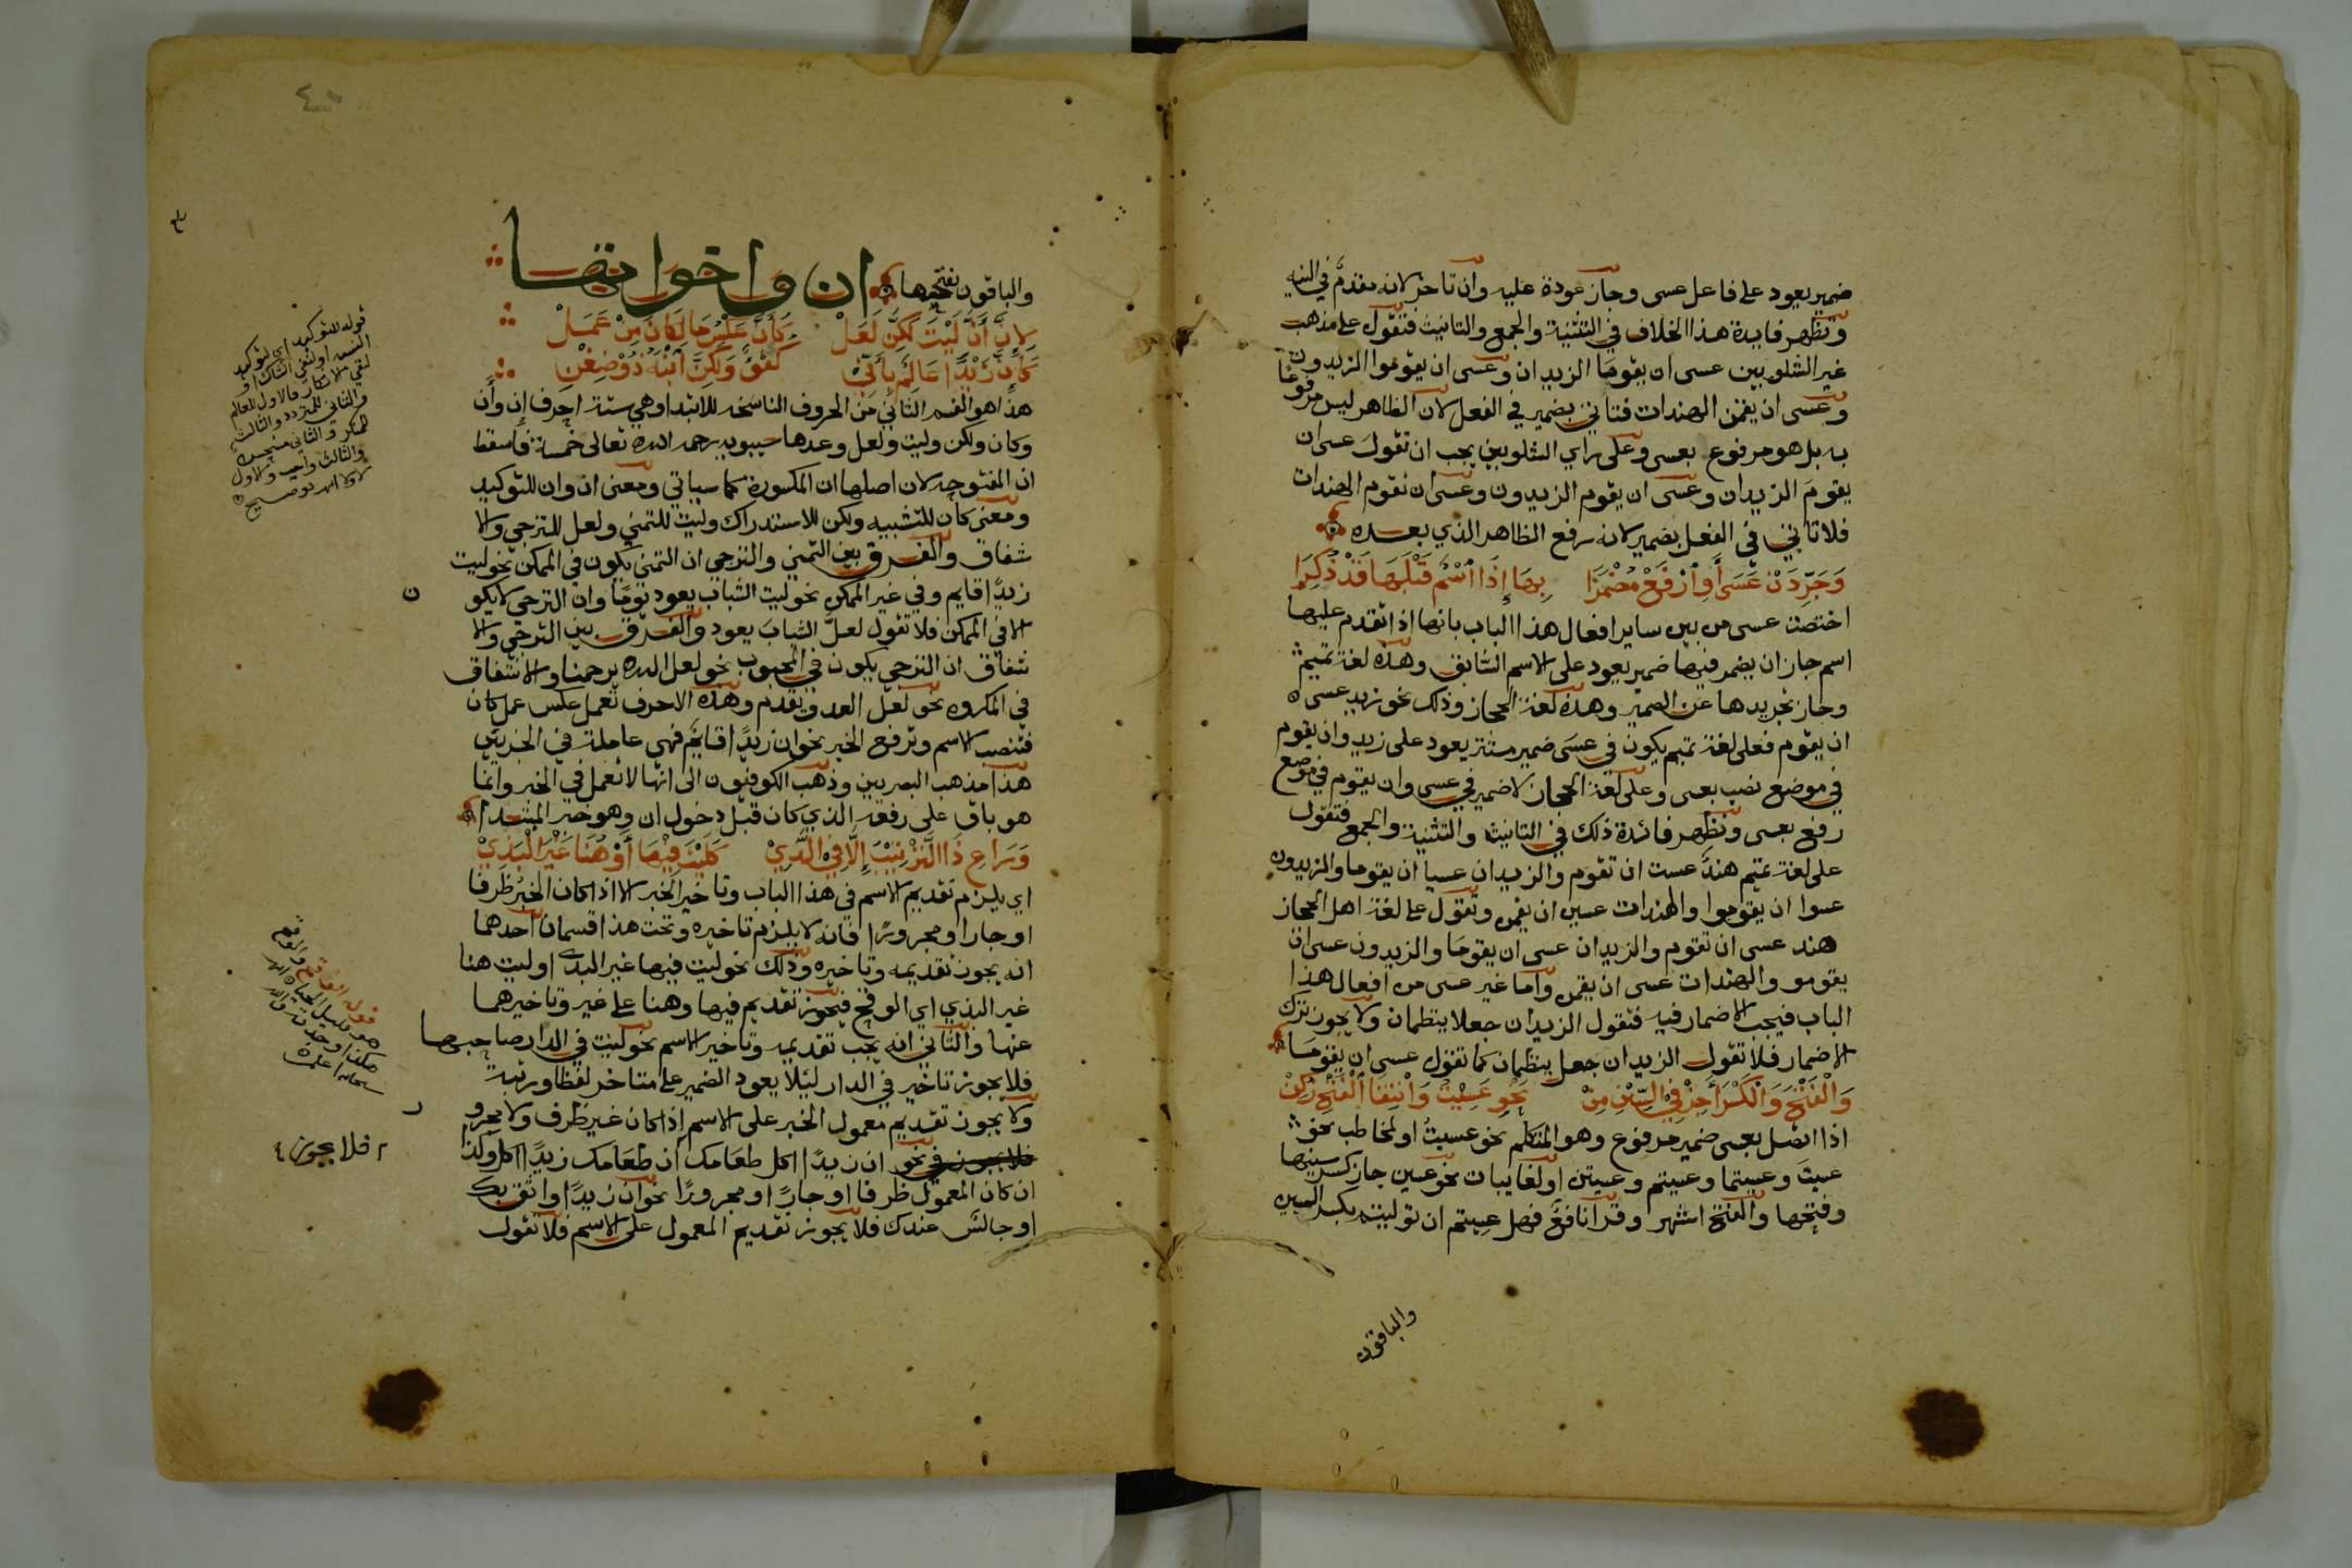 ضمير يعود على فاعل عسى وجاز عودة عليه وان تاخر لانه مقدم في النيه
وتظهر فايدة هذا الخلاف في التثنية والجمع والتانيث فتقول على مذهب
غير الشلوبين عسى ان يقوما الزيدان وعسى ان يقوموا الزيدون
وعسى ان يقمن الهندات فتاتي بضمير في الفعل لان الظاهر ليس مرفوعا
به بل هو مرفوع بعسى وعلى راي الشلوبين يجب ان تقول عسى ان
يقوم الزيدان وعسى ان يقوم الزيدون وعسى ان تقوم الهندات
فلا تاتي في الفعل بضمير لانه رفع الظاهر الذي بعده
وَجَرِّدَنْ عَسَى أَوِ ارْفَعْ مُضْمَرَا بِهَا إِذَا اسْمٌ قَبْلَهَا قَدْ ذُكِرَا
اختصت عسى من بين ساير افعال هذا الباب بانها اذا تقدم عليها
اسم جاز ان يضمر فيها ضمير يعود على الاسم السابق وهذه لغة تميم
وجاز تجريدها عن الضمير وهذه لغة الحجاز وذلك نحو زيد عسى
ان يقوم فعلى لغة تميم يكون في عسى ضمير مستتر يعود على زيد وان يقوم
في موضع نصب بعسى وعلى لغة الحجاز لا ضمير في عسى وان يقوم في موضع
رفع بعسى وتظهر فائدة ذلك في التانيث والتثنية والجمع فتقول
على لغة تميم هند عست ان تقوم والزيدان عسيا ان يقوما والزيدون
عسوا ان يقوموا والهندات عسين ان يقمن وتقول على لغة اهل الحجاز
هند عسى ان تقوم والزيدان عسى ان يقوما والزيدون عسى ان
يقومو والهندات عسى ان يقمن واما غير عسى من افعال هذا
الباب فيجب الاضمار فيه فتقول الزيدان جعلا ينظمان ولا يجوز ترك
الاضمار فلا تقول الزيدان جعل ينظمان كما تقول عسى ان يقوما
وَالْفَتْحَ وَالْكَسْرَ أَجِزْ فِي السِّيْنِ مِنْ نَحْوِ عَسِيْتُ وَانْتِقَا الْفَتْحِ زُكِنْ
اذا اتصل بعسى ضمير مرفوع وهو المتكلم نحو عسيتُ او لمخاطب نحو
عسيتَ وعسيتما وعسيتم وعسيتن او لغايبات نحو عسين جاز كسر سينها
وفتحها والفتح اشهر وقرا نافع فهل عسيتم ان توليتم بكسر السين
والباقون
والباقون بفتحها ان واخواتها
لِإِنَّ أَنَّ لَيْتَ لَكِنَّ لَعَلْ كَأَنَّ عَكْسُ مَا لِكَانَ مِنْ عَمَلْ
كَإِنَّ زَيْدًا عَالِمٌ بِأَنِّي كُفْؤٌ وَلَكِنَّ ابْنَهُ ذُوْ ضِغْنِ
هذا هو القسم الثاني من الحروف الناسخه للابتدا وهي ستة احرف إن وأن
وكان ولكن وليت ولعل وعدها سيبويه رحمه الله تعالى خمسة فاسقط
ان المفتوحه لان اصلها ان المكسورة كما سياتي ومعنى ان وان للتوكيد
ومعنى كان للتشبيه ولكن للاستدراك وليت للتمني ولعل للترجي والا
شفاق والفرق بين التمني والترجي ان التمني يكون في الممكن نحو ليت
زيدًا قايم وفي غير الممكن نحو ليت الشباب يعود يومًا وان الترجي لا يكو ن
الا في الممكن فلا تقول لعل الشبابَ يعود والفرق بين الترجي والا
شفاق ان الترجي يكون في المحبوب نحو لعل الله يرحمنا والاشفاق
في المكروه نحو لعل العدو يقدم وهذه الاحرف تعمل عكس عمل كان
فتنصب الاسم وترفع الخبر نحو ان زيدًا قايم فهي عاملة في الجزءين
هذا مذهب البصريين وذهب الكوفيون الى انها لا تعمل في الخبر وانما
هو باق على رفعه الذي كان قبل دخول ان وهو خبر المبتدا
وَرَاعِ ذَا التَّرْتِيْبَ إِلَّا فِي الَّذِيْ كَلَيْتَ فِيْهَا أَوْ هُنَا غَيْرَ الْبَذِيْ
اي يلزم تقديم الاسم في هذا الباب وتاخير الخبر الا اذا كان الخبر ظرفا
او جارا ومجرورًا فانه لا يلزم تاخيره وتحت هذا قسمان احدهما
انه يجوز تقديمه وتاخيره وذلك نحو ليت فيها غير البذي او ليت هنا
غير البذي اي الوقح فيجوز تقديم فيها وهنا على غير وتاخيرهما
عنها والثاني انه يجب تقديمه وتاخير الاسم نحو ليت في الدار صاحبها
فلا يجوز تاخير في الدار ليلا يعود الضمير على متاخر لفظا ورتبة
ولا يجوز تقديم معمول الخبر على الاسم اذا كان غير ظرف ولا مجرو ر
فلا يجوز في نحو ان زيدًا اكل طعامك ان طعامك زيدًا اكل وكذا
ان كان المعمول ظرفا او جارًا ومجرورًا نحو ان زيدًا واثق بك
او جالسٌ عندك فلا يجوز تقديم المعمول على الاسم فلا تقول
قوله للتوكيد اي لتوكيد
النسبه او لنفي الشك او
لنفي الانكار فالاول للعالم
والثاني للمتردد والثالث
للمنكر والثاني مستحسن
والثالث واجب والاول
فلا يجوز